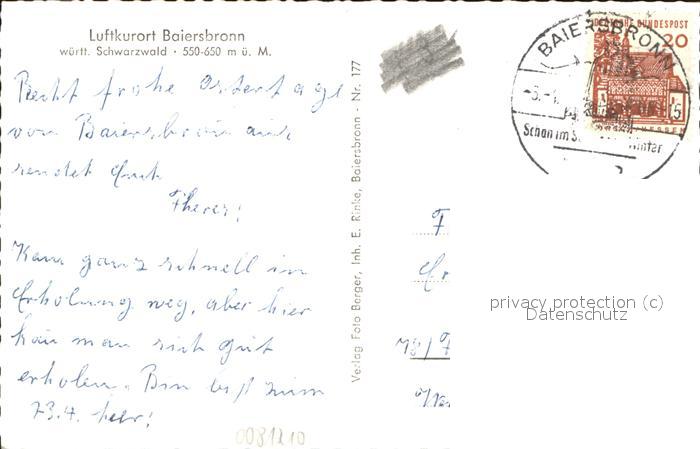 Luftkurort Baiersbronn
württ. Schwarzwald · 550-650 m ü. M.
Recht frohe Ostertage
von Baiersbronn aus
sendet Euch
Kam ganz schnell in
Erholung weg, aber hier
kan man sich gut
erholen. Bin bis zum
23.4. hier!
0081210
Verlag Foto Berger, Inh. E. Rinke, Baiersbronn - Nr. 177
BAIERSBRONN
Schön im
Winter
DEUTSCHE BUNDESPOST
20
HESSEN
privacy protection (c)
Datenschutz